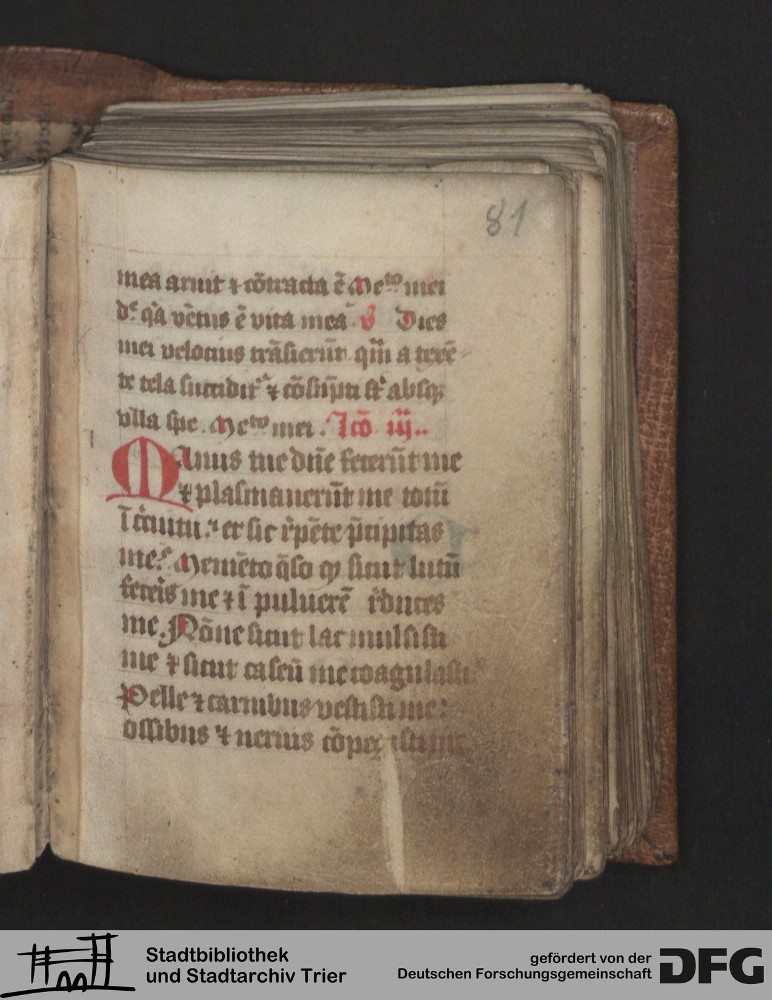 81
mea aruit ⁊ cōtracta ē Meᵗᵒ mei
d̓ qa vētus ē vita mea v̓ Dies
mei velocius trāsierūt qm̄ a texē⸗
te tela succidit᷑ ⁊ cōsūpti st̄ absq̨
vlla spe. Meᵗᵒ mei. Lcō iij..
Manus tue dn̄e fecerūt me
⁊ plasmauerūt me totū
ī circuitu: et sic r̓pēte p̄cipitas
me: Memēto q̄so ꝙ sicut lutū
feceris me ⁊ ī puluerē r̓duces
me. Nōne sicut lac mulsisti
me ⁊ sicut caseū me coagulasti
Pelle ⁊ carnibus vestisti me:
ossibus ⁊ neruis cōpegisti me
Stadtbibliothek
und Stadtarchiv Trier
gefördert von der
Deutschen Forschungsgemeinschaft
DFG